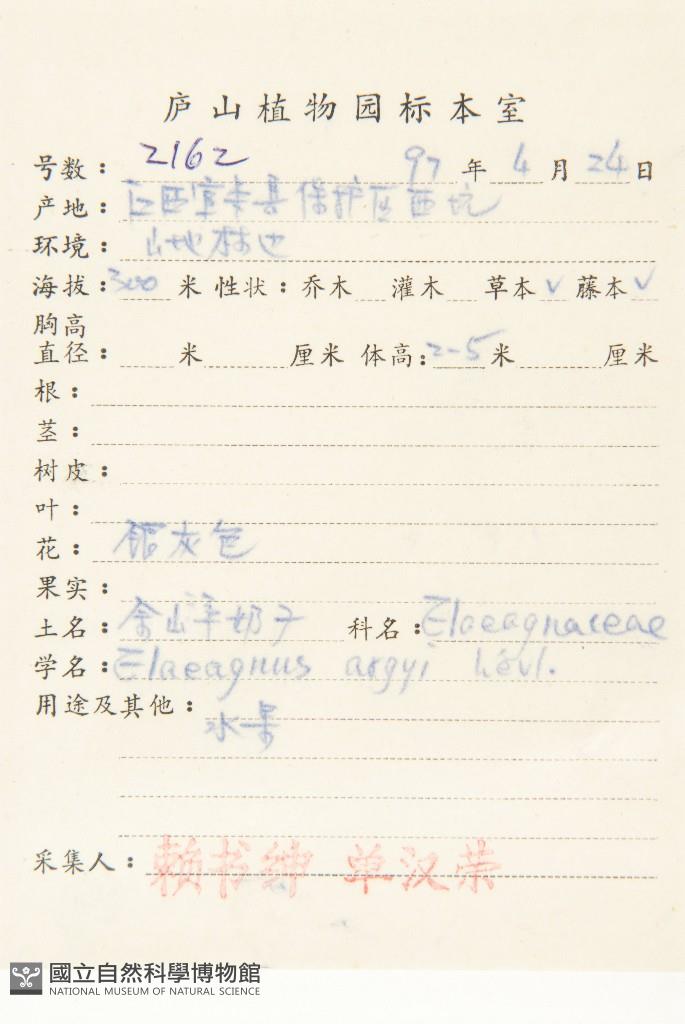 庐山植物园标本室
号数：2162 97年4月24日
产地：江西宜丰县保护区西坑
环境：山地林边
海拔：300米 性状：乔木 灌木 草本√ 藤本√
胸高
直径： 米 厘米 体高：2-5米 厘米
根：
茎：
树皮：
叶：
花：银灰色
果实：
土名：佘山羊奶子 科名：Elaeagnaceae
学名：Elaeagnus argyi Lévl.
用途及其他：
水果
采集人：赖书绅 单汉荣
國立自然科學博物館
NATIONAL MUSEUM OF NATURAL SCIENCE